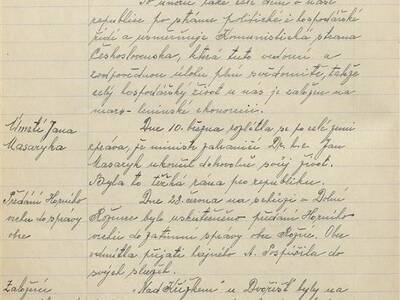 V únoru také celé dění v naší
republice po stránce politické i hospodářské
řídí a usměrňuje Komunistická strana
Československa, která tuto vedoucí a
zodpovědnou úlohu plní svědomitě, takže
celý hospodářský život u nás je založen na
marx-leninské ekonomii.
Úmrtí Jana
Masaryka
Dne 10. března rozlétla se po celé zemi
zpráva, že ministr zahraničí Dr. h. c. Jan
Masaryk ukončil dobrovolně svůj život.
Byla to těžká rána pro republiku.
Přidání Horního
vrchu do správy
obce
Dne 28. června na schůzi v Dolní
Rožínce bylo uskutečněno přidání Horního
vrchu do zatímní správy obce Rožné. Obec
odmítla přijati hajného A. Pospíšila do
svých služeb.
Založení
"Nad Křížkem" u Dvořišť byly na